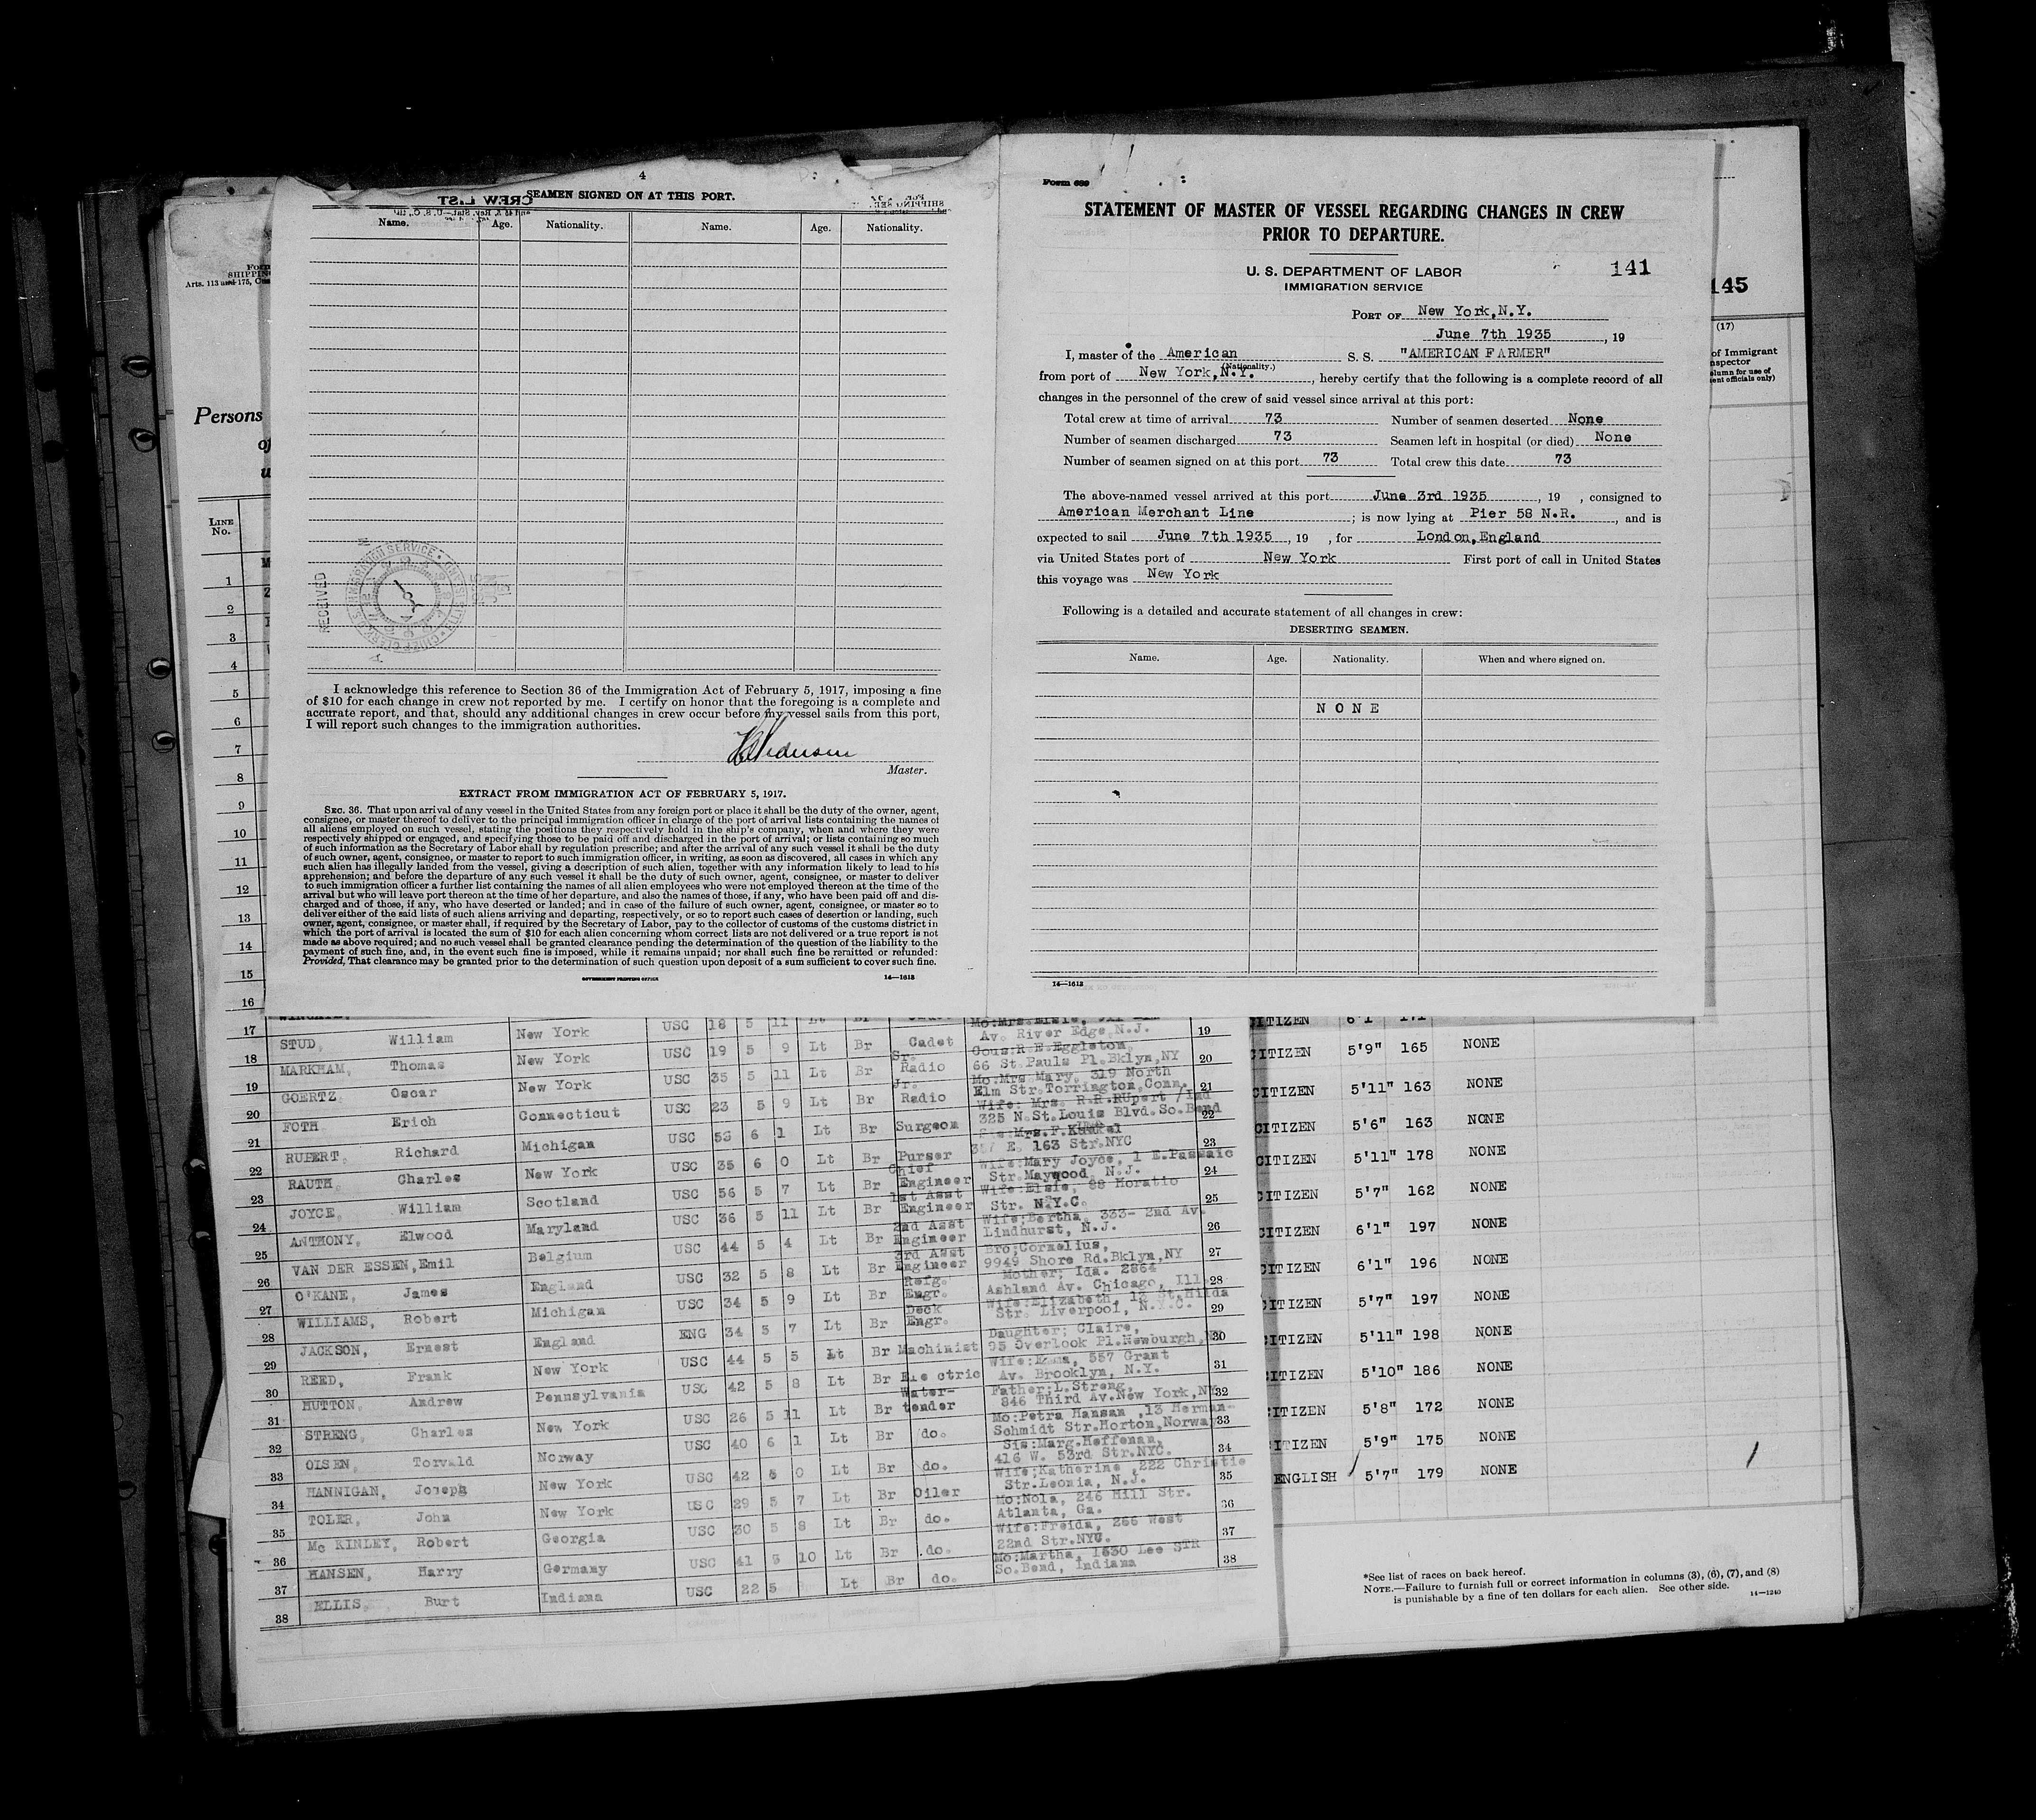 4
SEAMEN SIGNED ON AT THIS PORT.
CREW LIST
Name. Age. Nationality. Name. Age. Nationality.
RECEIVED
I acknowledge this reference to Section 36 of the Immigration Act of February 5, 1917, imposing a fine
of $10 for each change in crew not reported by me. I certify on honor that the foregoing is a complete and
accurate report, and that, should any additional changes in crew occur before my vessel sails from this port,
I will report such changes to the immigration authorities.
Master.
EXTRACT FROM IMMIGRATION ACT OF FEBRUARY 5, 1917.
SEC. 36. That upon arrival of any vessel in the United States from any foreign port or place it shall be the duty of the owner, agent,
consignee, or master thereof to deliver to the principal immigration officer in charge of the port of arrival lists containing the names of
all aliens employed on such vessel, stating the positions they respectively hold in the ship's company, when and where they were
respectively shipped or engaged, and specifying those to be paid off and discharged in the port of arrival; or lists containing so much
of such information as the Secretary of Labor shall by regulation prescribe; and after the arrival of any such vessel it shall be the duty
of such owner, agent, consignee, or master to report to such immigration officer, in writing, as soon as discovered, all cases in which any
such alien has illegally landed from the vessel, giving a description of such alien, together with any information likely to lead to his
apprehension; and before the departure of any such vessel it shall be the duty of such owner, agent, consignee, or master to deliver
to such immigration officer a further list containing the names of all alien employees who were not employed thereon at the time of the
arrival but who will leave port thereon at the time of her departure, and also the names of those, if any, who have been paid off and dis-
charged and of those, if any, who have deserted or landed; and in case of the failure of such owner, agent, consignee, or master so to
deliver either of the said lists of such aliens arriving and departing, respectively, or so to report such cases of desertion or landing, such
owner, agent, consignee, or master shall, if required by the Secretary of Labor, pay to the collector of customs of the customs district in
which the port of arrival is located the sum of $10 for each alien concerning whom correct lists are not delivered or a true report is not
made as above required; and no such vessel shall be granted clearance pending the determination of the question of the liability to the
payment of such fine, and, in the event such fine is imposed, while it remains unpaid; nor shall such fine be remitted or refunded:
Provided, That clearance may be granted prior to the determination of such question upon deposit of a sum sufficient to cover such fine.
GOVERNMENT PRINTING OFFICE 14—1613
Form 689
STATEMENT OF MASTER OF VESSEL REGARDING CHANGES IN CREW
PRIOR TO DEPARTURE.
U. S. DEPARTMENT OF LABOR
IMMIGRATION SERVICE
141
PORT OF New York,N.Y.
June 7th 1935, 19
I, master of the American S. S. "AMERICAN FARMER"
(Nationality.)
from port of New York,N.Y., hereby certify that the following is a complete record of all
changes in the personnel of the crew of said vessel since arrival at this port:
Total crew at time of arrival 73 Number of seamen deserted None
Number of seamen discharged 73 Seamen left in hospital (or died) None
Number of seamen signed on at this port 73 Total crew this date 73
The above-named vessel arrived at this port June 3rd 1935, 19 , consigned to
American Merchant Line; is now lying at Pier 58 N.R., and is
expected to sail June 7th 1935, 19 , for London,England
via United States port of New York First port of call in United States
this voyage was New York
Following is a detailed and accurate statement of all changes in crew:
DESERTING SEAMEN.
Name. Age. Nationality. When and where signed on.
NONE
14—1613
145
(17)
of Immigrant
nspector
olumn for use of
ent officials only)
Form
SHIPPIN
Arts. 113 and 175, Cus
Persons
of
u
LINE
No.
1
2
3
4
5
6
7
8
9
10
11
12
13
14
15
16
17 STUD, William New York USC 18 5 11 Lt Br
18 MARKHAM, Thomas New York USC 19 5 9 Lt Br Cadet Av. River Edge N.J. 19
19 GOERTZ Oscar New York USC 35 5 11 Lt Br Sr. Radio Cous:R.E.Eggleton, 66 St.Pauls Pl.Bklyn,NY 20
20 FOTH Erich Connecticut USC 23 5 9 Lt Br Jr. Radio Mo:Mrs.Mary, 319 North Elm Str.Torrington,Conn. 21
21 RUPERT, Richard Michigan USC 53 6 1 Lt Br Surgeon Wife: Mrs. R.R.RUpert /Ind 325 N.St.Louis Blvd.So.Bend 22
22 RAUTH, Charles New York USC 35 6 0 Lt Br Purser E. 163 Str.NYC 23
23 JOYCE, William Scotland USC 56 5 7 Lt Br Chief Engineer Wife:Mary Joyce, 1 E.Passaic Str.Maywood, N.J. 24
24 ANTHONY, Elwood Maryland USC 36 5 11 Lt Br 1st Asst Engineer Wife:Elsie, 88 Horatio Str. N.Y.C. 25
25 VAN DER ESSEN,Emil Belgium USC 44 5 4 Lt Br 2nd Asst Engineer Wife;Bertha, 333- 2nd Av. Lindhurst, N.J. 26
26 O'KANE, James England USC 32 5 8 Lt Br 3rd Asst Engineer Bro;Cornelius, 9949 Shore Rd.Bklyn,NY 27
27 WILLIAMS, Robert Michigan USC 34 5 9 Lt Br Refg. Engr. Mother; Ida. 2864 Ashland Av. Chicago, Ill 28
28 JACKSON, Ernest England ENG 34 5 7 Lt Br Deck Engr. Wife:Elizabeth, 12 St.Hilda Str. Liverpool, N.Y.C. 29
29 REED, Frank New York USC 44 5 5 Lt Br Machinist Daughter; Claire, 95 Overlook Pl.Newburgh, 30
30 HUTTON, Andrew Pennsylvania USC 42 5 8 Lt Br Electric Wife:Emma, 557 Grant Av. Brooklyn, N.Y. 31
31 STRENG, Charles New York USC 26 5 11 Lt Br Water-tender Father;L.Streng, 846 Third Av.New York,NY 32
32 OLSEN, Torvald Norway USC 40 6 1 Lt Br do. Mo:Petra Hansan ,13 Herman-Schmidt Str.Horton,Norway 33
33 HANNIGAN, Joseph New York USC 42 6 0 Lt Br do. Sis:Marg.Heffenan, 416 W. 53rd Str.NYC. 34
34 TOLER, John New York USC 29 5 7 Lt Br Oiler Wife;Katherine ,222 Christie Str.Leonia, N.J. 35
35 Mc KINLEY, Robert Georgia USC 30 5 8 Lt Br do. Mo:Nola, 246 Hill Str. Atlanta, Ga. 36
36 HANSEN, Harry Germany USC 41 5 10 Lt Br do. Wife:Freida, 266 West 22nd Str.NYC. 37
37 ELLIS, Burt Indiana USC 22 5 Lt Br do. Mo:Martha, 1330 Lee STR So.Bend, Indiana 38
38
CITIZEN 6'1" 171
CITIZEN 5'9" 165 NONE
CITIZEN 5'11" 163 NONE
CITIZEN 5'6" 163 NONE
CITIZEN 5'11" 178 NONE
CITIZEN 5'7" 162 NONE
CITIZEN 6'1" 197 NONE
CITIZEN 6'1" 196 NONE
CITIZEN 5'7" 197 NONE
CITIZEN 5'11" 198 NONE
CITIZEN 5'10" 186 NONE
CITIZEN 5'8" 172 NONE
CITIZEN 5'9" 175 NONE
ENGLISH 5'7" 179 NONE
*See list of races on back hereof.
NOTE.—Failure to furnish full or correct information in columns (3), (6), (7), and (8)
is punishable by a fine of ten dollars for each alien. See other side. 14—1240